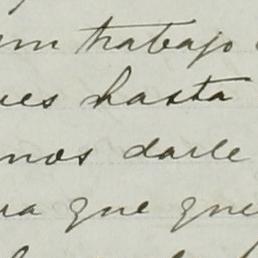 un trabajo
ues hasta
nos darle
ra que que